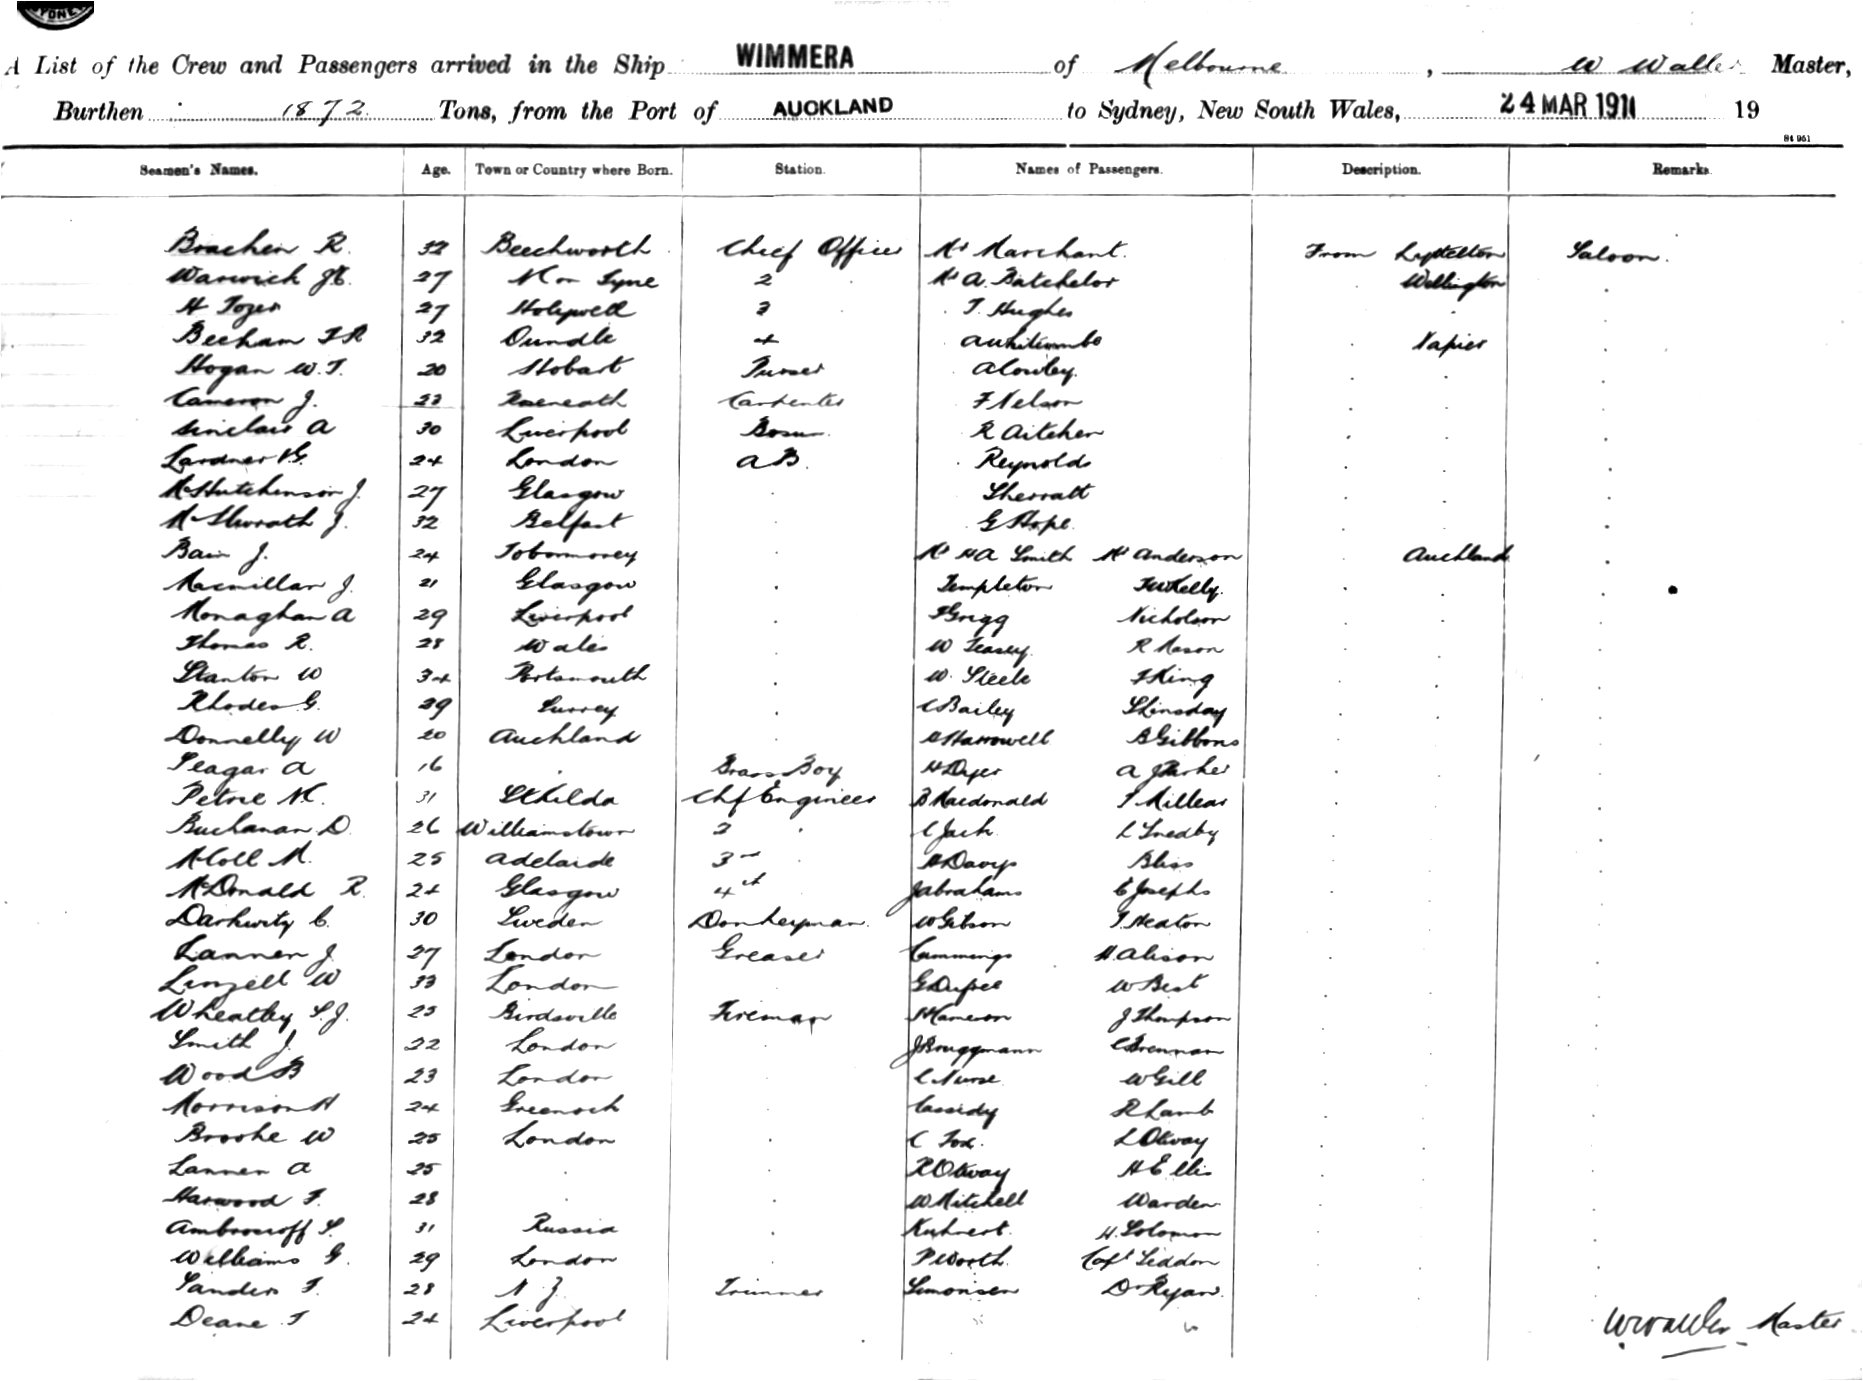 SYDNEY
A List of the Crew and Passengers arrived in the Ship WIMMERA of Melbourne, W Waller Master,
Burthen 1872 Tons, from the Port of AUCKLAND to Sydney, New South Wales, 24 MAR 1911 19
84 951
Seamen's Names. Age. Town or Country where Born. Station. Names of Passengers. Description. Remarks.
Bracken R. 32 Beechworth Chief Officer Mr Marchant. From Lyttelton Saloon.
Warwick 27 N on Tyne 2 Mr A. Batchelor Wellington
H Tozer 27 Holywell 3 T. Hughes
Beeham F R 32 Oundle 4 Napier
Hogan W. T. 20 Hobart Purser A Cowley.
Cameron J. 23 Roseneath Carpenter F Nelson
Sinclair A 30 Liverpool Bosun R Aitchen
Lardner 24 London A B. Reynolds
McHutchenson J. 27 Glasgow Sherratt
McIlwrath J. 32 Belfast G Hope
Bain J. 24 Tobermorey Mr H A Smith Mr Anderson Auckland
Macmillan J. 21 Glasgow Templeton Kelly.
Monaghan A 29 Liverpool Grigg Nicholson
Thomas R. 28 Wales W Teasey. R Mason
Stanton W 34 Portsmouth W. Steele F King
Rhodes G. 29 Surrey C Bailey S Linsday
Donnelly W 20 Auckland Harrowell B Gibbons
Seagar A 16 . Brass Boy H Dyer A J Parker
Petrie M. 31 St Kilda Chf Engineer B Macdonald T Millear
Buchanan D. 26 Williamstown 2 C Jack L Snedby
McColl M. 25 Adelaide 3rd Davys Bliss
McDonald R. 24 Glasgow 4th J Abrahams E Josephs
Darkwitz C. 30 Sweden Donkeyman. W Gibson T. Heaton
Lannen J 27 London Greaser Cummings H. Alison
Linzell W 33 London G Dufree W Best
Wheatley S. J. 25 Birdsville Fireman H Cameron J Thompson
Smith J 22 London J Bruggmann C Brennan
Wood B 23 London C Nurse W Gill
Morrison H 24 Greenock Cassidy R Lamb
Brooke W 25 London C Fox. L Otway
Lannen A 25 . R Otway H Ellis
Harwood F. 28 . W Mitchell Warden
Ambrosoff S. 31 Russia Kuhnert. H. Solomon
Williams G. 29 London P Worth. Capt Siddon
Sanders F. 28 N Z Trimmer Simonsen Dr Ryan.
Deane T 24 Liverpool W Waller Master